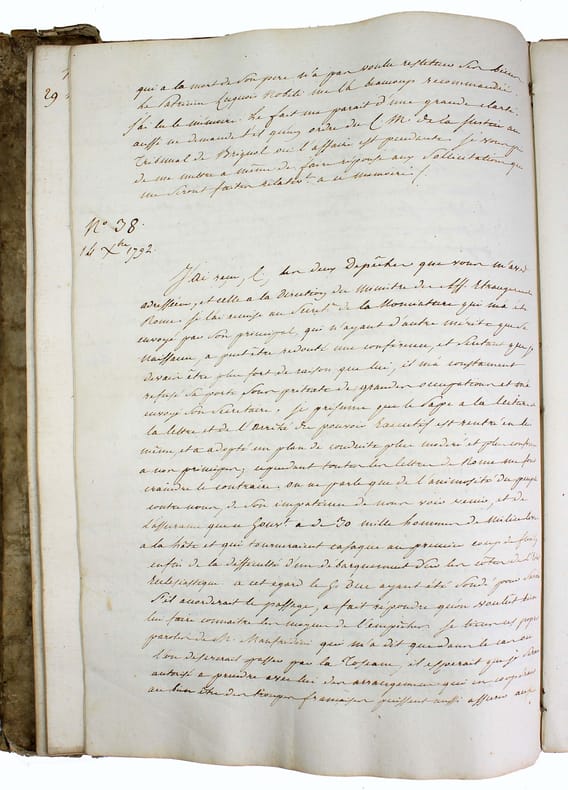 29
qui a la mort de Son pere n'a pas voulu restituer Ses biens
Le Patricien Nobili me l'a beaucoup recommandé.
J'ai lu le mémoire. Le fait me parait d'une grande clarté
aussi ne demande t-il qu'un ordre de C. M. de la Justice au
Tribunal de ou l'affaire est pendante. Je vous
de me mettre à même de faire reponse aux Sollicitations que
me Seront faites relativt a ce memoire /
N° 38.
14 Xbre 1792.
J'ai reçu, C, les deux Depêches que vous m'avez
adressées, et celle a la Direction du Ministre des Aff. Etrangeres
Rome. Je l'ai remise au Secret. de la Nonciature qui m'a été
envoyé par Son principal, qui n'ayant d'autre mérite que Sa
naissance, a peut être redouté une conférence, et Sentant que je
devais être plus fort de raison que lui, il m'a constament
refusé Sa porte Sous pretexte de grandes occupations et m'a
envoyé Son Secretaire. Je présume que le Pape a la lecture de
la lettre et de l'Arrêté du pouvoir Executif est rentré en lui
même, et a adopté un plan de conduite plus modéré et plus conforme
a nos principes; cependant toutes les lettres de Rome me font
craindre le contraire. On ne parle que de l'animosité du peuple
contre nous, de Son impatience de nous voir venir, et de
l'assurance que ce Gouvt a de 30 mille hommes de Milice levés
a la hâte et qui tourneraient casaque au premier coup de fusil,
enfin de la difficulté d'un debarquement Sur les côtes de l'Etat
Eclesiastique. a cet égard le G. Duc ayant été Sondé pour Savoir
S'il accorderait le passage, a fait répondre qu'on voulut bien
lui faire connaitre les moyens de l'empêcher. Je tiens ces propres
paroles de M. Manfredini qui m'a dit que dans le cas ou
l'on désirerait passer par la Toscane, il espérait que je Serais
autorisé a prendre avec lui des arrangemens qui en coopérant
au bien être des troupes françaises puissent aussi assurer aux